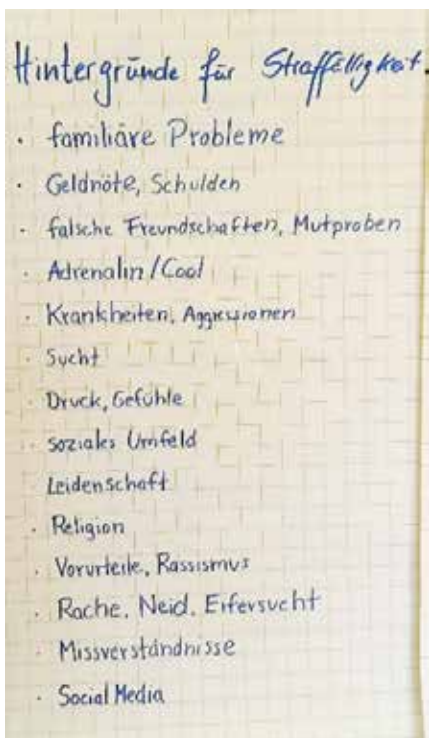 Hintergründe für Straffälligkeit.
· familiäre Probleme
· Geldnöte, Schulden
· falsche Freundschaften, Mutproben
· Adrenalin/Cool
· Krankheiten, Aggressionen
· Sucht
· Druck, Gefühle
· soziales Umfeld
Leidenschaft
· Religion
· Vorurteile, Rassismus
· Rache, Neid, Eifersucht
· Missverständnisse
· Social Media